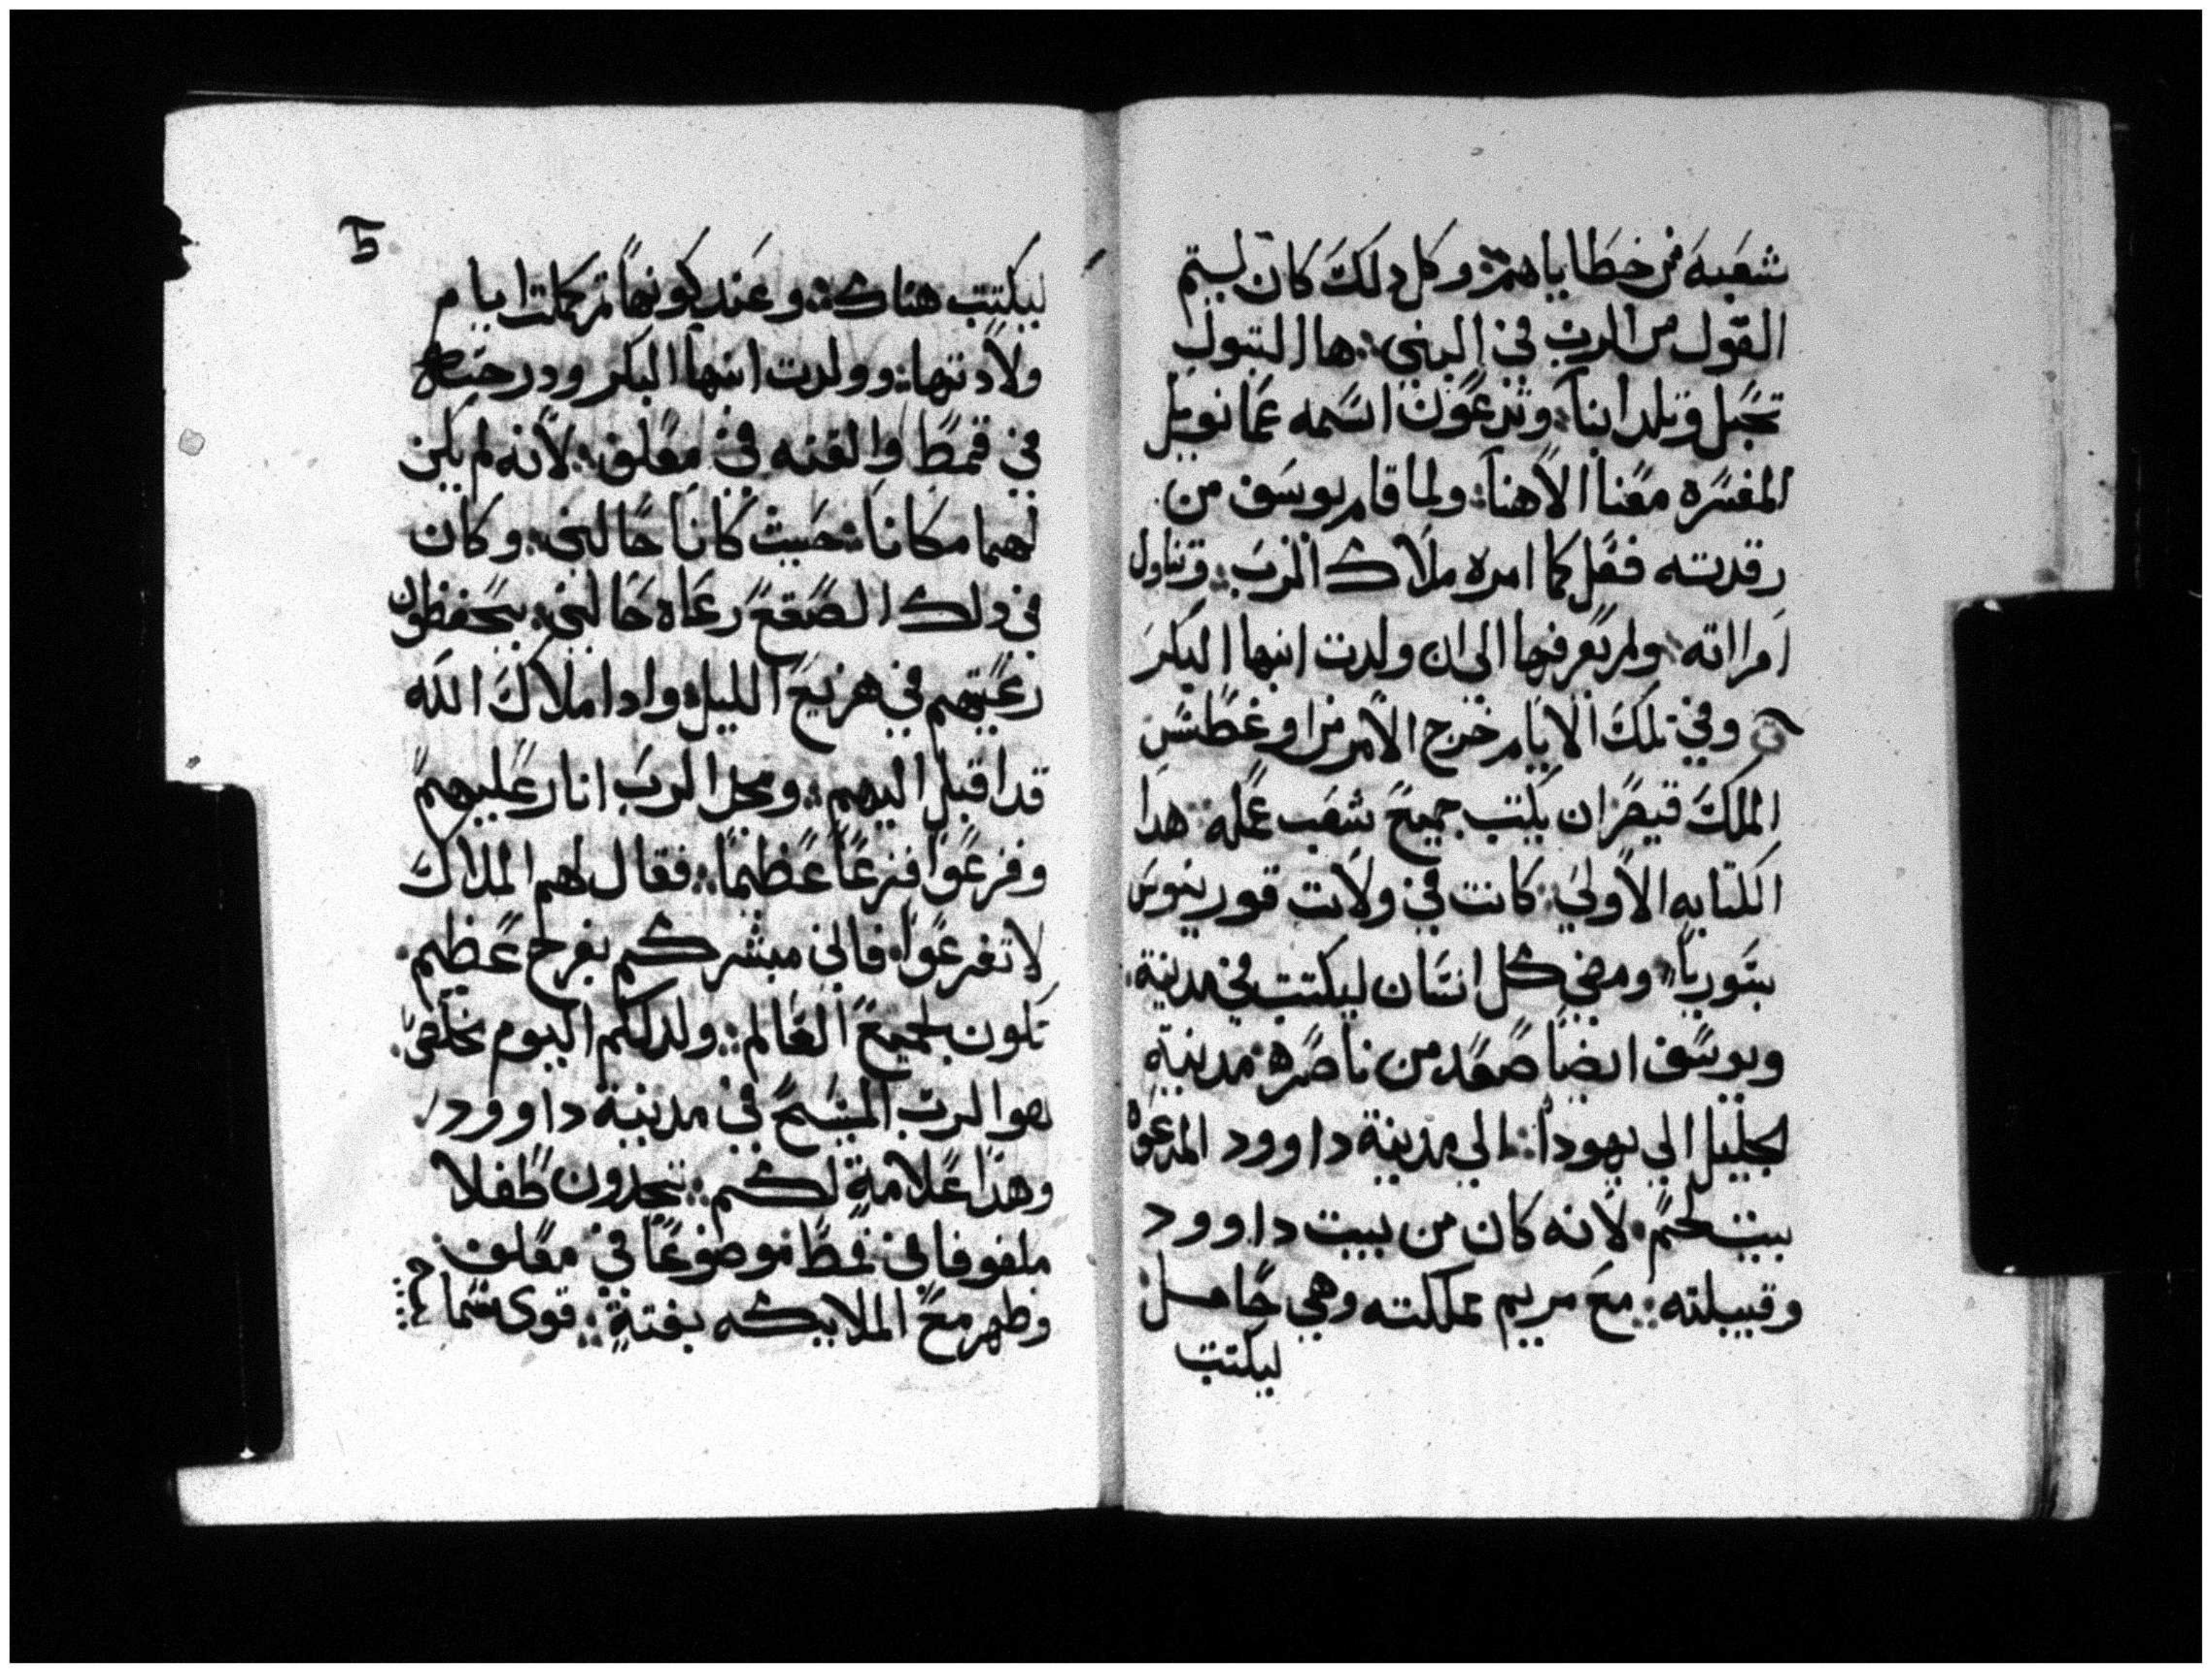 شعبه من خطاياهم: وكل دلك كان ليتم
القول من الرب في النبي: ها البتول
تحبل وتلد ابنا: وتدعون اسمه عمانويل
المفسره معنا الاهنا: ولما قام يوسف من
رقدته ففعل كما امره ملاك الرب: وتناول
امراته: ولم يعرفها الى ان ولدت ابنها البكر
وفي تلك الايام خرج الامر من اوغطس
الملك قيصر ان يكتب جميع شعب عمله: هدا
الكتابه الاولي: كانت في ولات قورينوس
بسوريا: ومضي كل انسان ليكتتب في مدينة
ويوسف ايضا صعد من ناصره: مدينة
لجليل الي يهودا: الي مدينة داوود المدعوه
بيت لحم: لانه كان من بيت داوود
وقبيلته: مع مريم مملكته وهي حامل
ليكتتب
5
ليكتتب هناك: وعند كونها ثم كملت ايام
ولادتها: وولدت ابنها البكر ودرجته
في قمط والقته في معلف: لانه لم يكن
لهما مكانا: حيث كانا حالين: وكان
في دلك الصقع رعاه حالين: يحفظون
رعيتهم في هزيع الليل: وادا ملاك الله
قد اقبل اليهم: ومجل الرب انار عليهم
وفزعوا فزعا عظيما: فقال لهم الملاك
لا تفزعوا: فاني مبشركم بفرح عظيم
تكون لجميع العالم: ولد لكم اليوم مخلص
هوا الرب المسيح في مدينة داوود
وهدا علامة لكم: تجدون طفلا
ملفوفا في قمط موضوعا في معلف
وظهر مع الملاييكه بغتة: قوى سما